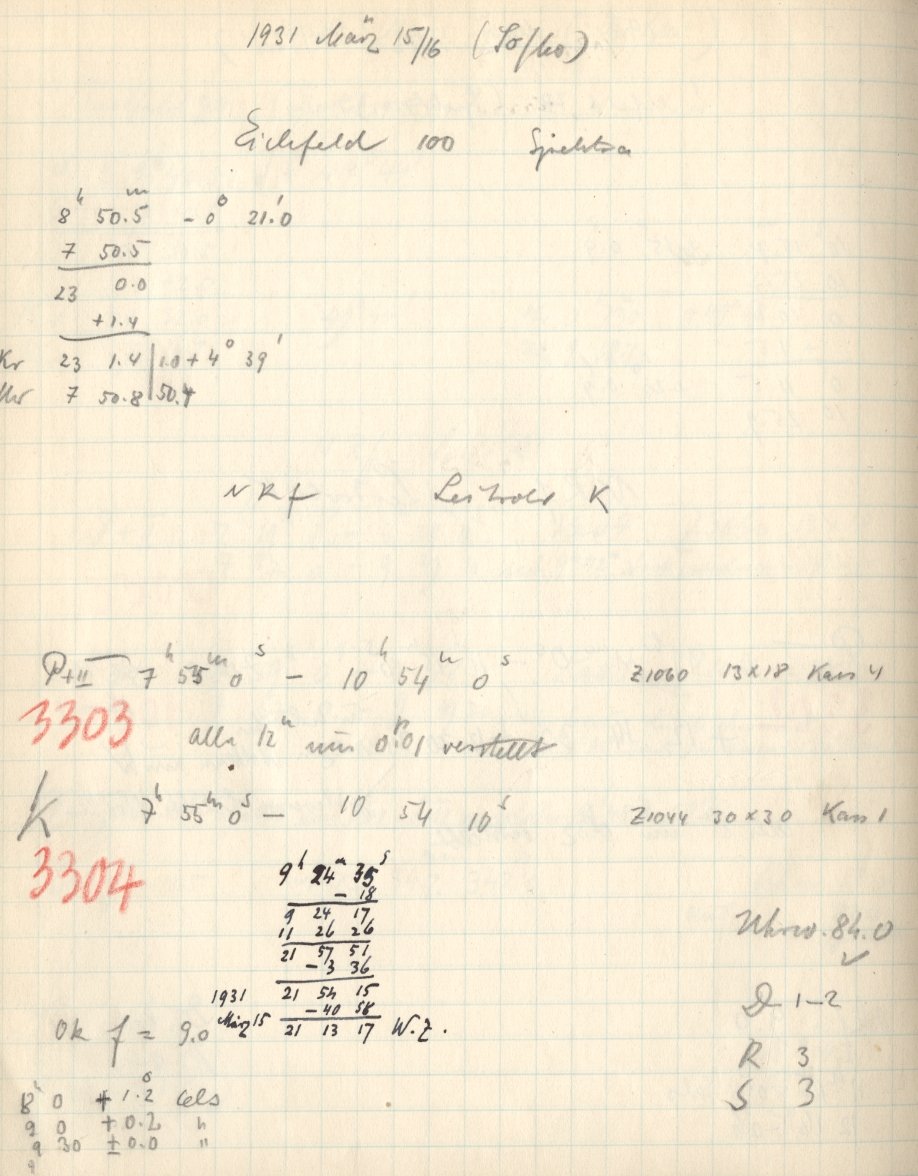 1931 März 15/16 (So/Mo)
Eichfeld 100 Spektra
8h 50.5m - 0° 21'.0
7 50.5
23 0.0
+1.4
Kr 23 1.4 | 1.0 + 4° 39'
Uhr 7 50.8 | 50.4
NRf Leitrohr K
P+II 7h 55m 0s - 10h 54m 0s Z1060 13x18 Kass 4
3303
alle 12m um 0p.01 verstellt
K 7h 55m 0s - 10 54 10s Z1044 30x30 Kass 1
3304
9h 24m 35s
- 18
9 24 17
11 26 26
21 57 51
-3 36
1931 21 54 15
-40 58
März 15 21 13 17 W.Z.
Uhrw. 84.0
✓
D 1-2
Ok f = 9.0
R 3
S 3
8h 0 + 1°.2 Cels
9 0 + 0.2 "
9 30 ± 0.0 "
9